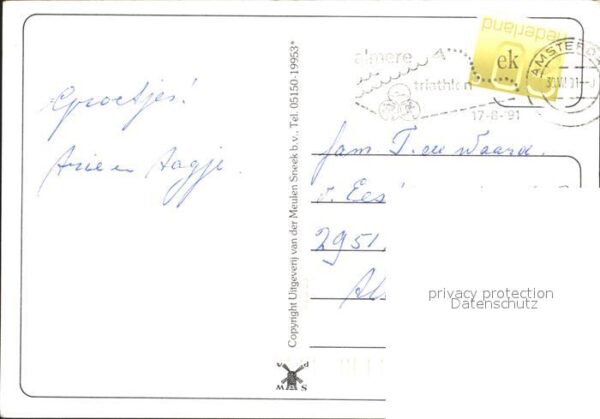 Groetjes!
Arie en Aagje.
Copyright Uitgeverij van der Meulen Sneek b.v., Tel. 05150-19953*
nederland
ek
almere
triathlon
17-8-91
AMSTERDA
fam T. de Waard.
v. Ees
2951
Al
privacy protection
Datenschutz